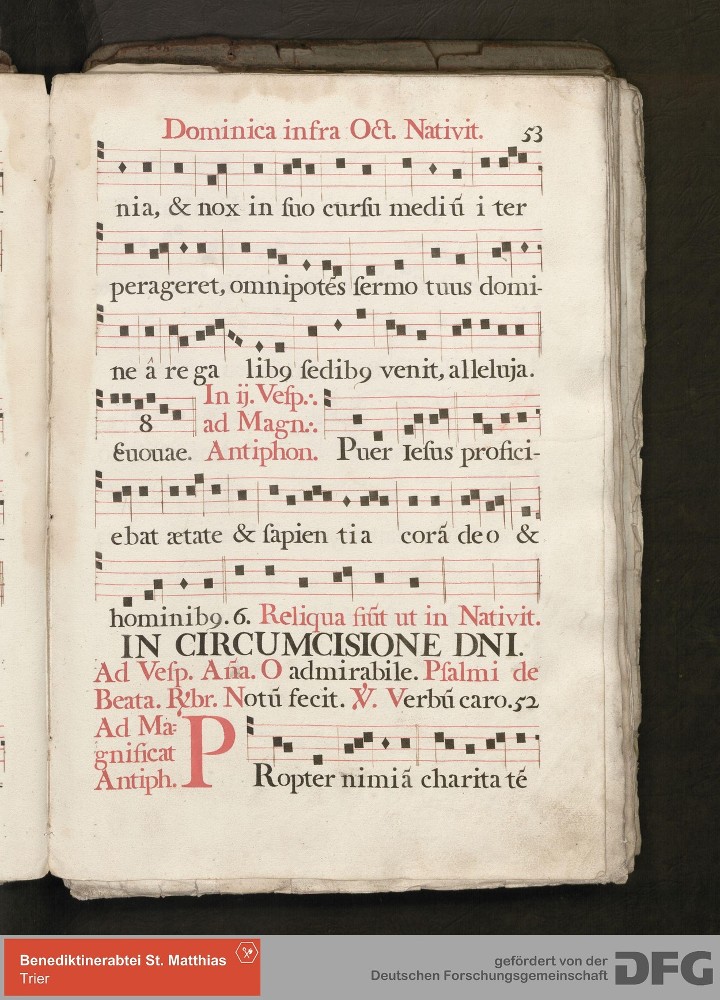 Dominica infra Oct. Nativit. 53
nia, & nox in ſuo curſu mediũ i ter
perageret, omnipotẽs ſermo tuus domi-
ne â re ga lib9 ſedib9 venit, alleluja.
8
In ij. Veſp.
ad Magn.
Euouae. Antiphon. Puer Ieſus profici-
ebat ætate & ſapien tia corã deo &
hominib9. 6. Reliqua fiũt ut in Nativit.
IN CIRCUMCISIONE DNI.
Ad Veſp. Aña. O admirabile. Pſalmi de
Beata. R̷br. Notũ fecit. V̷. Verbũ caro. 52
Ad Ma-
gnificat
Antiph. PRopter nimiã charita tẽ
Benediktinerabtei St. Matthias
Trier
gefördert von der
Deutschen Forschungsgemeinschaft DFG